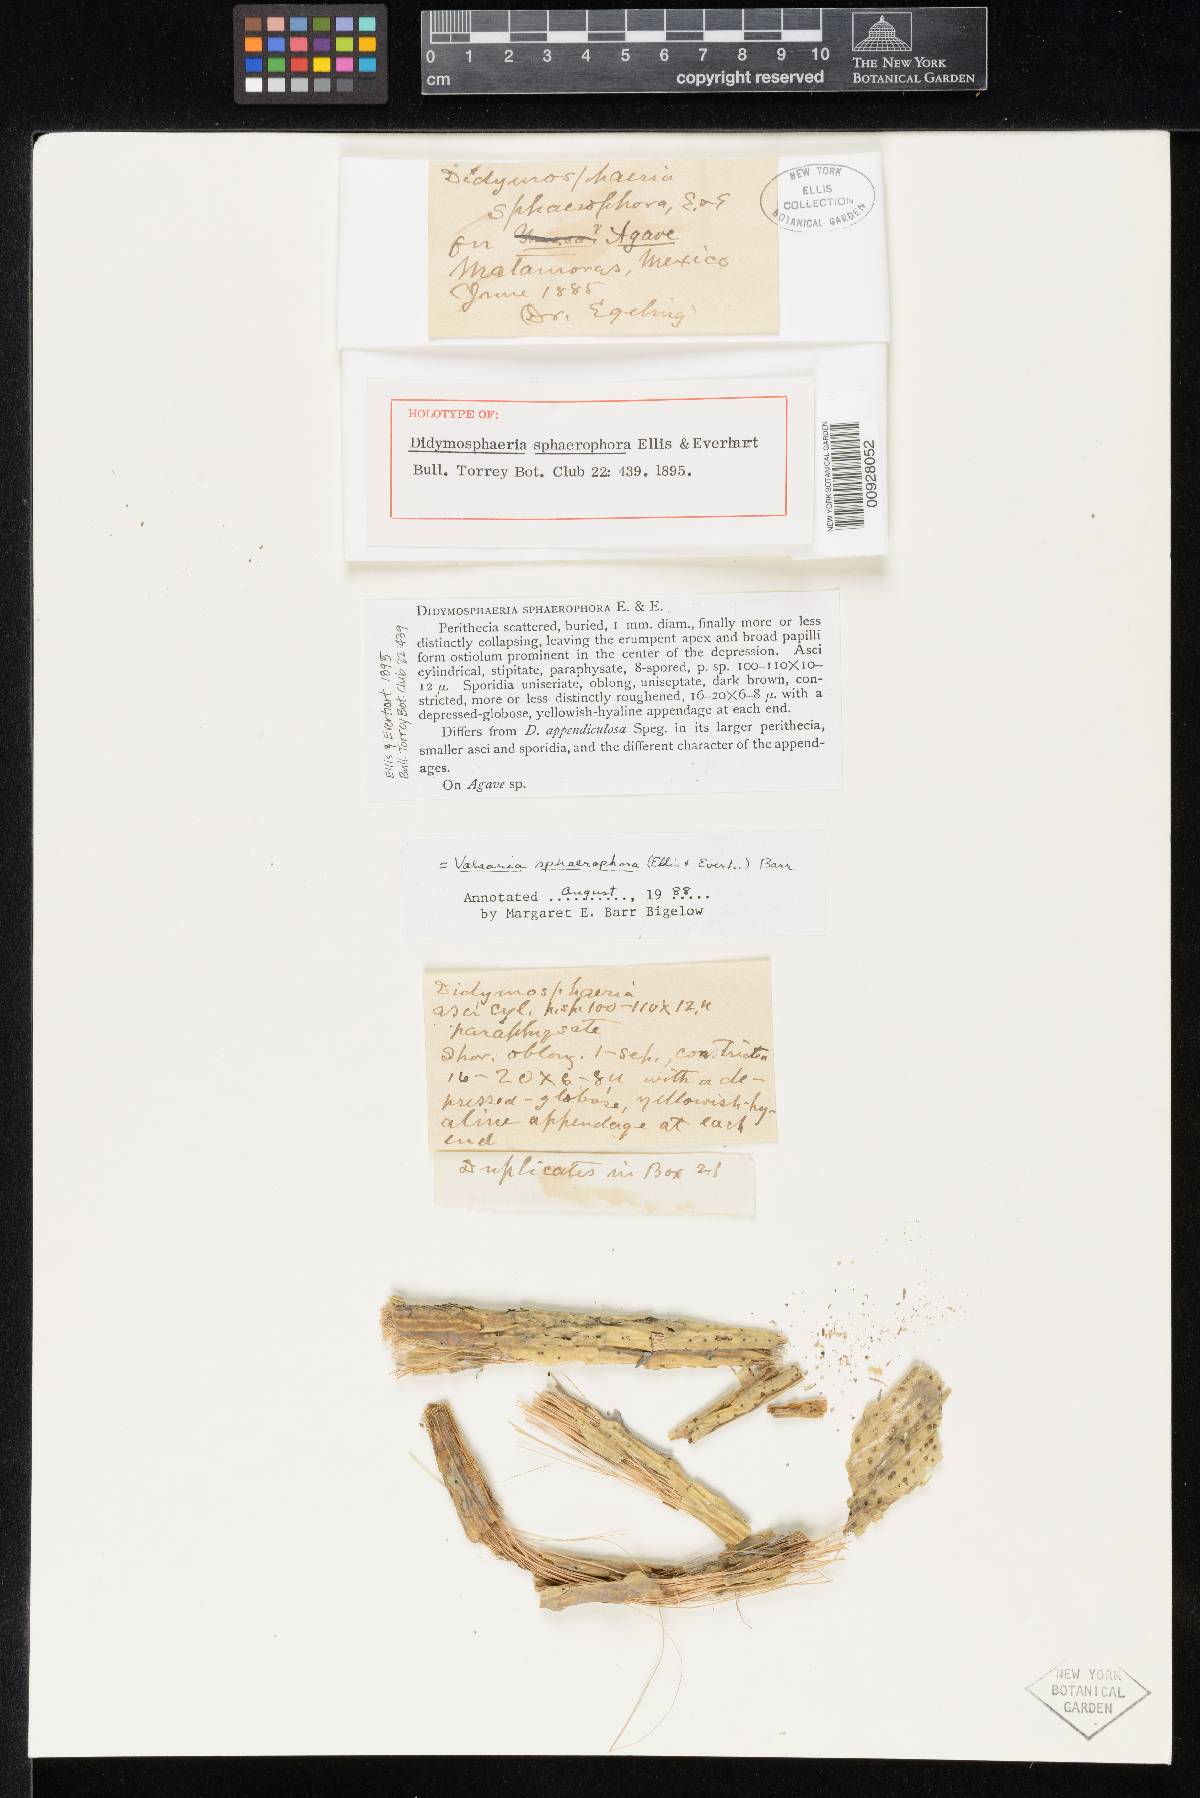 0 1 2 3 4 5 6 7 8 9 10
cm
copyright reserved
THE NEW YORK
BOTANICAL GARDEN
Didymosphaeria
sphaerophora, E & E
on Yucca? Agave
Matamoras, Mexico
June 1885
Dr. Egeling
NEW YORK
ELLIS
COLLECTION
BOTANICAL GARDEN
HOLOTYPE OF:
Didymosphaeria sphaerophora Ellis & Everhart
Bull. Torrey Bot. Club 22: 439. 1895.
NEW YORK BOTANICAL GARDEN
00928052
Ellis & Everhart 1895
Bull. Torrey Bot. Club 22:439
DIDYMOSPHAERIA SPHAEROPHORA E. & E.
Perithecia scattered, buried, 1 mm. diam., finally more or less
distinctly collapsing, leaving the erumpent apex and broad papilli
form ostiolum prominent in the center of the depression. Asci
cylindrical, stipitate, paraphysate, 8-spored, p. sp. 100–110×10–
12 µ. Sporidia uniseriate, oblong, uniseptate, dark brown, con-
stricted, more or less distinctly roughened, 16–20×6–8 µ. with a
depressed-globose, yellowish-hyaline appendage at each end.
Differs from D. appendiculosa Speg. in its larger perithecia,
smaller asci and sporidia, and the different character of the append-
ages.
On Agave sp.
= Valsaria sphaerophora (Ellis & Everh.) Barr
Annotated August, 1988
by Margaret E. Barr Bigelow
Didymosphaeria
asci cyl. p.sp. 100–110×12µ
paraphysate
Spor. oblong. 1-sep., constricted
16–20×6–8µ with a de-
pressed-globose, yellowish-hy-
aline appendage at each
end
Duplicates in Box 21
NEW YORK
BOTANICAL
GARDEN